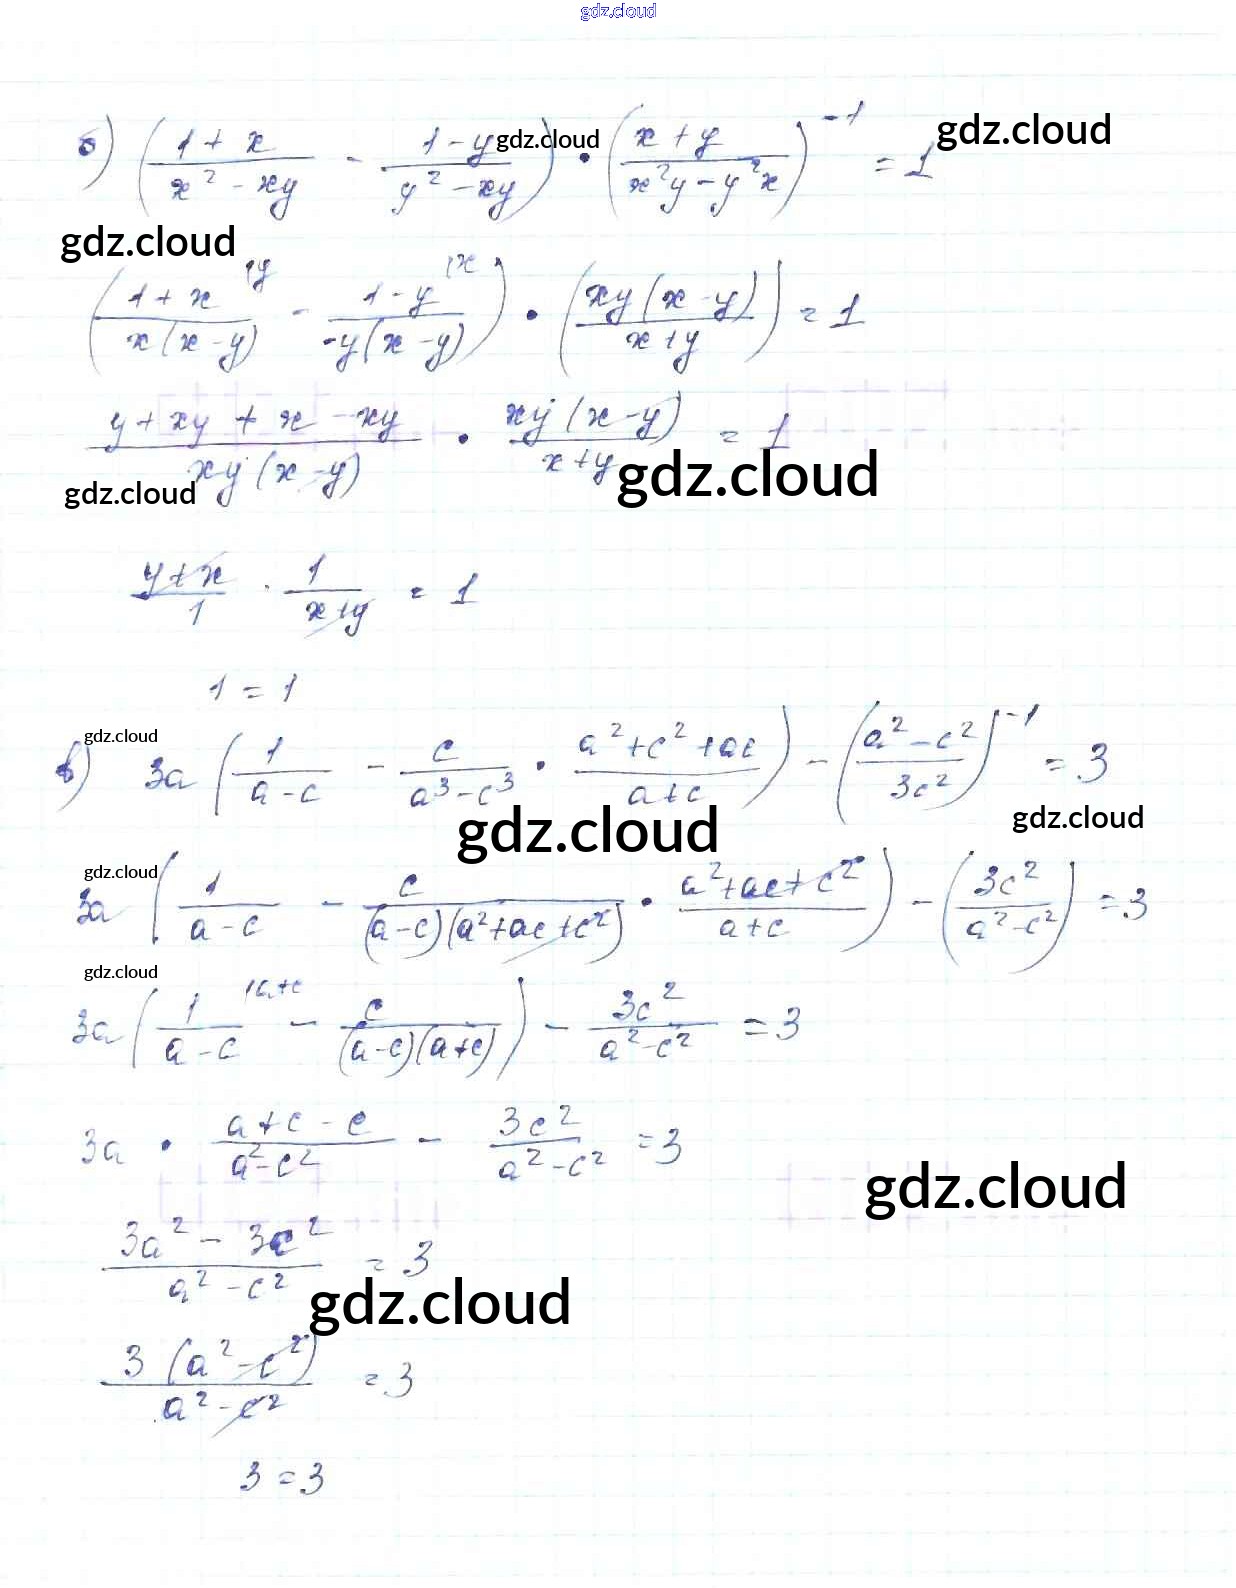 gdz.cloud
б) ((1+x)/(x²-xy) - (1-y)/(y²-xy)) • ((x+y)/(x²y-y²x))⁻¹ = 1
gdz.cloud
gdz.cloud
gdz.cloud
((1+x)/(x(x-y)) |y - (1-y)/(-y(x-y)) |x) • (xy(x-y)/(x+y)) = 1
(y+xy+x-xy)/(xy(x-y)) • xy(x-y)/(x+y) = 1
gdz.cloud
gdz.cloud
(y+x)/1 · 1/(x+y) = 1
1 = 1
gdz.cloud
в) 3a (1/(a-c) - c/(a³-c³) • (a²+c²+ac)/(a+c)) - ((a²-c²)/3c²)⁻¹ = 3
gdz.cloud
gdz.cloud
gdz.cloud
3a (1/(a-c) - c/((a-c)(a²+ac+c²)) • (a²+ac+c²)/(a+c)) - (3c²/(a²-c²)) = 3
gdz.cloud
3a (1/(a-c) |a+c - c/((a-c)(a+c))) - 3c²/(a²-c²) = 3
3a • (a+c-c)/(a²-c²) - 3c²/(a²-c²) = 3
gdz.cloud
(3a²-3c²)/(a²-c²) = 3
gdz.cloud
3(a²-c²)/(a²-c²) = 3
3 = 3